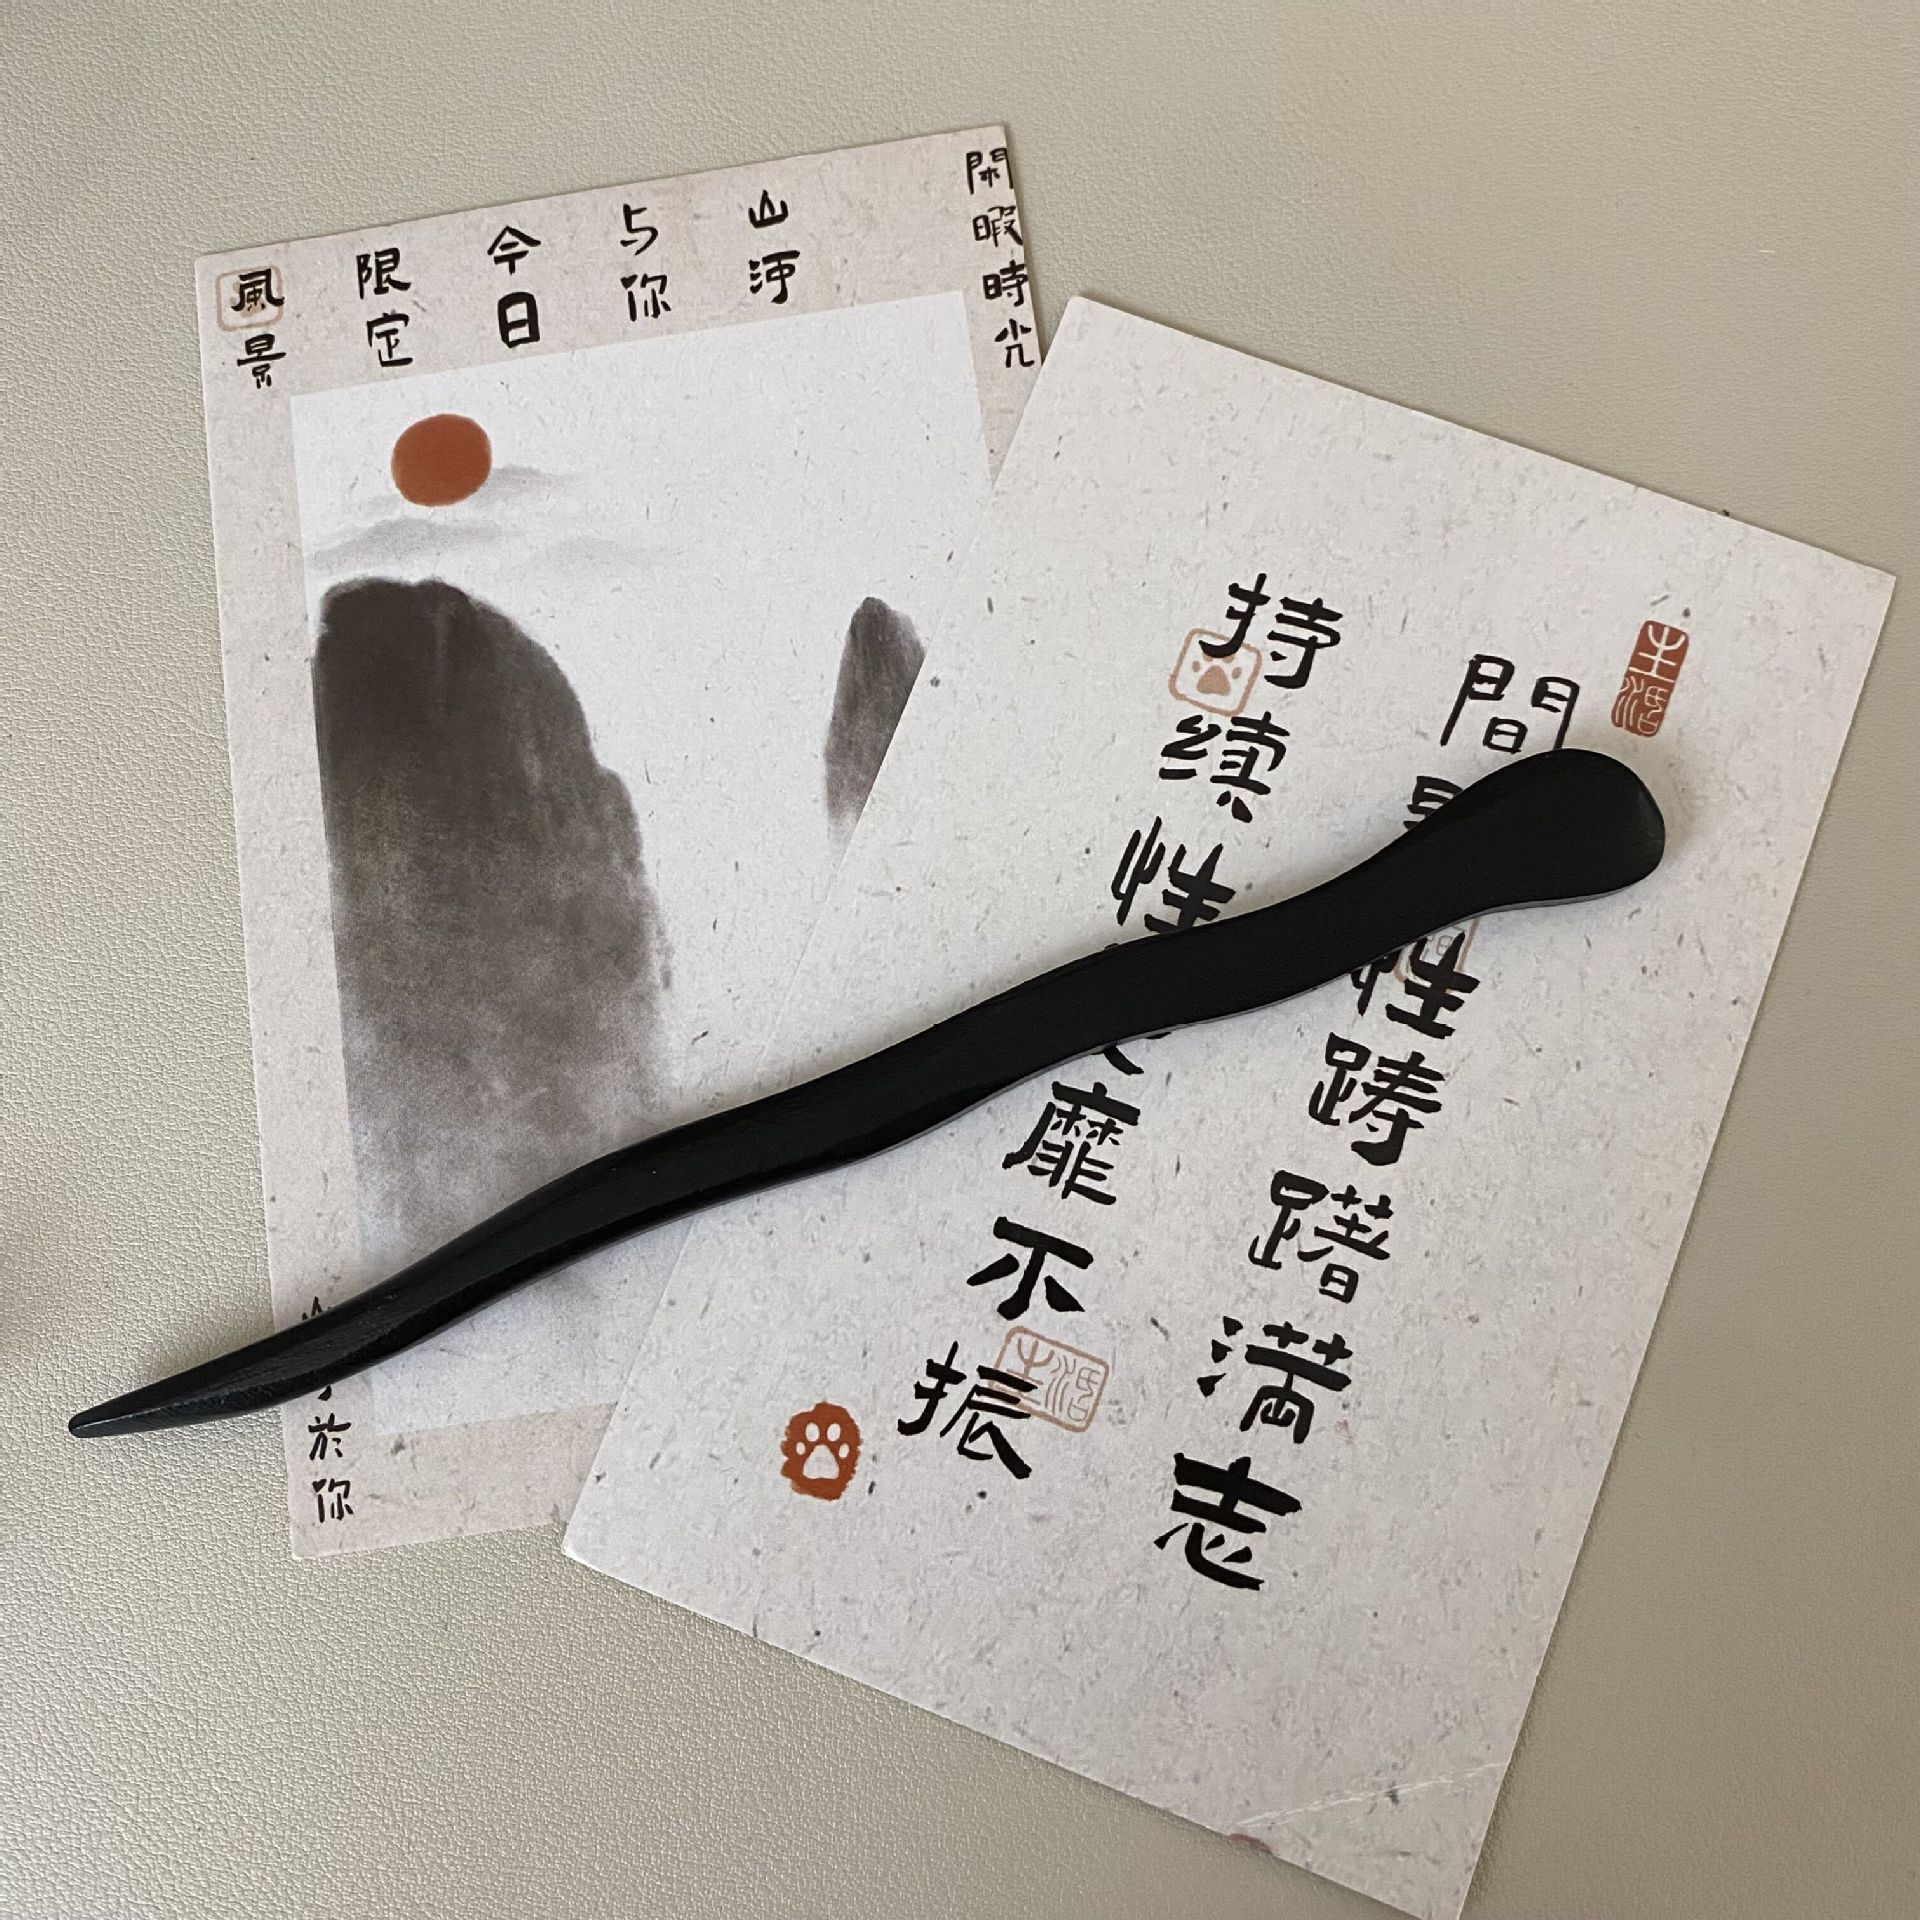 閑暇時光
山河
与你
今日
限定
風景
於你
間
性踌躇满志
持续性
靡不振
生活
生活